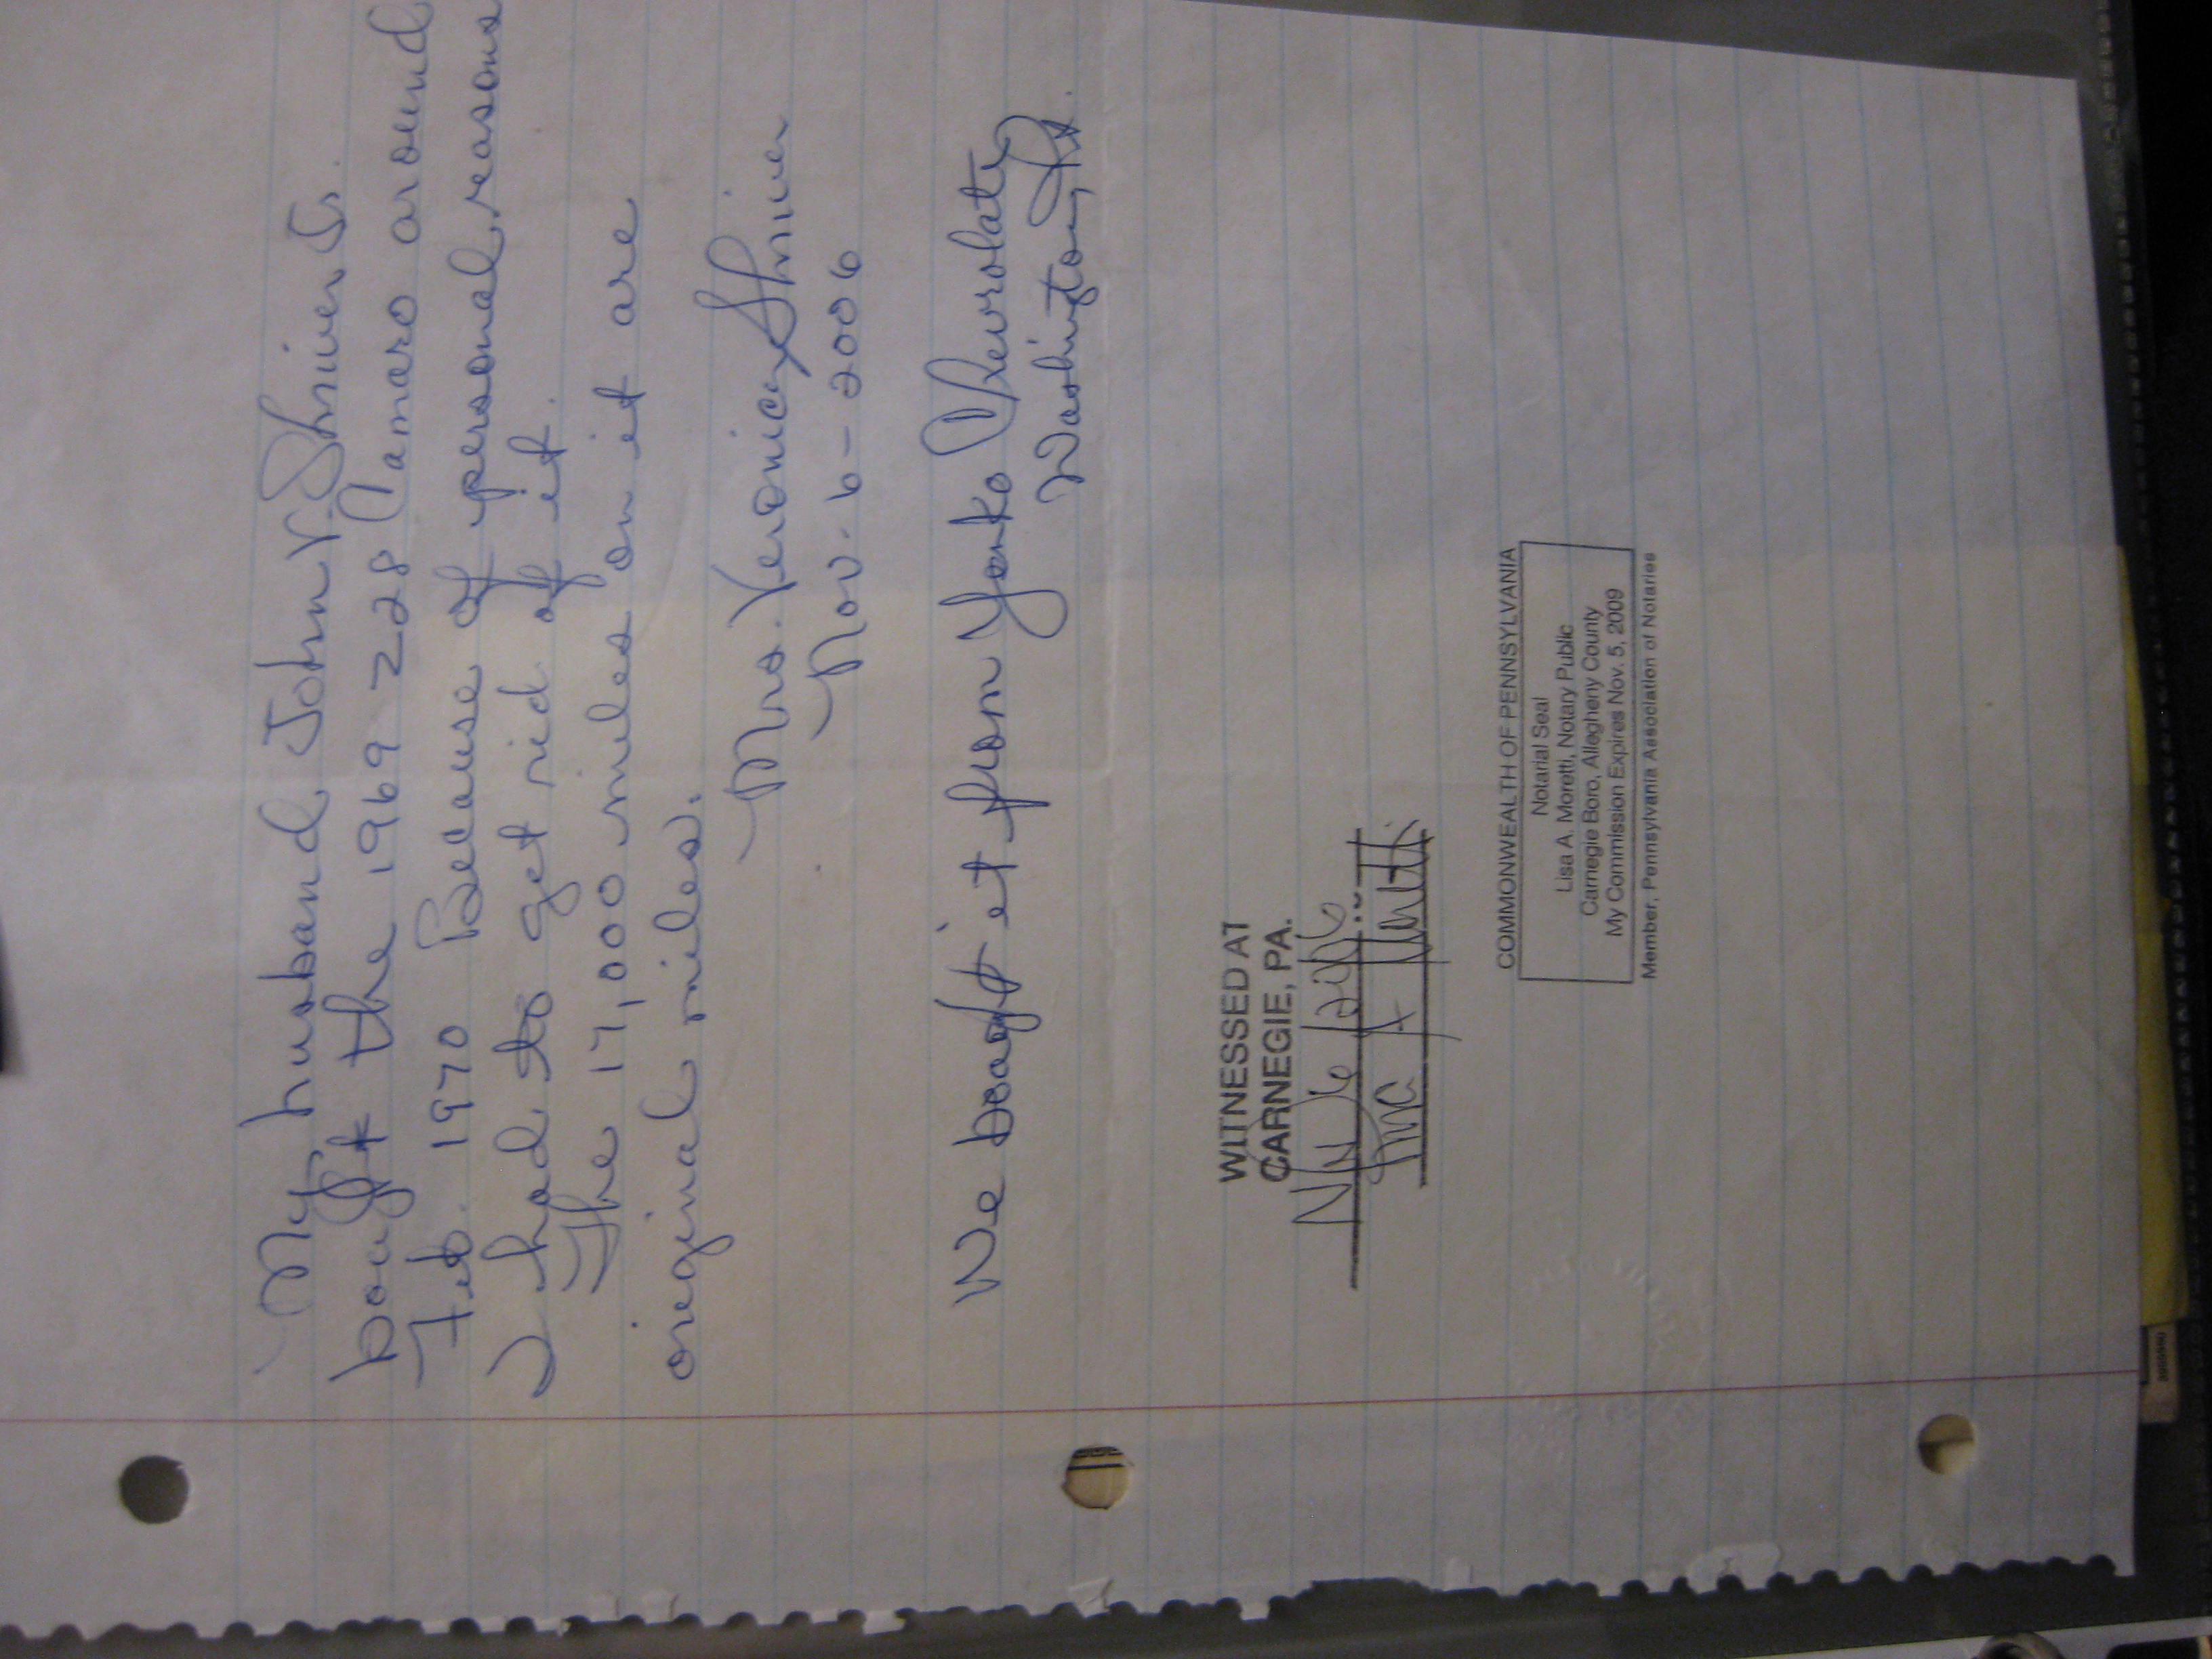 My husband, John V. Shriver Jr.
bought the 1969 Z28 Camaro around
Feb. 1970 Because of personal, reasons
I had to get rid of it.
The 17,000 miles on it are
original miles.
Mrs. Veronica Shriver
Nov. 6-2006
We bought it from Yenko Chevrolate
Washington, Pa.
WITNESSED AT
CARNEGIE, PA.
Nov 6 2006
Lisa A Moretti
COMMONWEALTH OF PENNSYLVANIA
Notarial Seal
Lisa A. Moretti, Notary Public
Carnegie Boro, Allegheny County
My Commission Expires Nov. 5, 2009
Member, Pennsylvania Association of Notaries